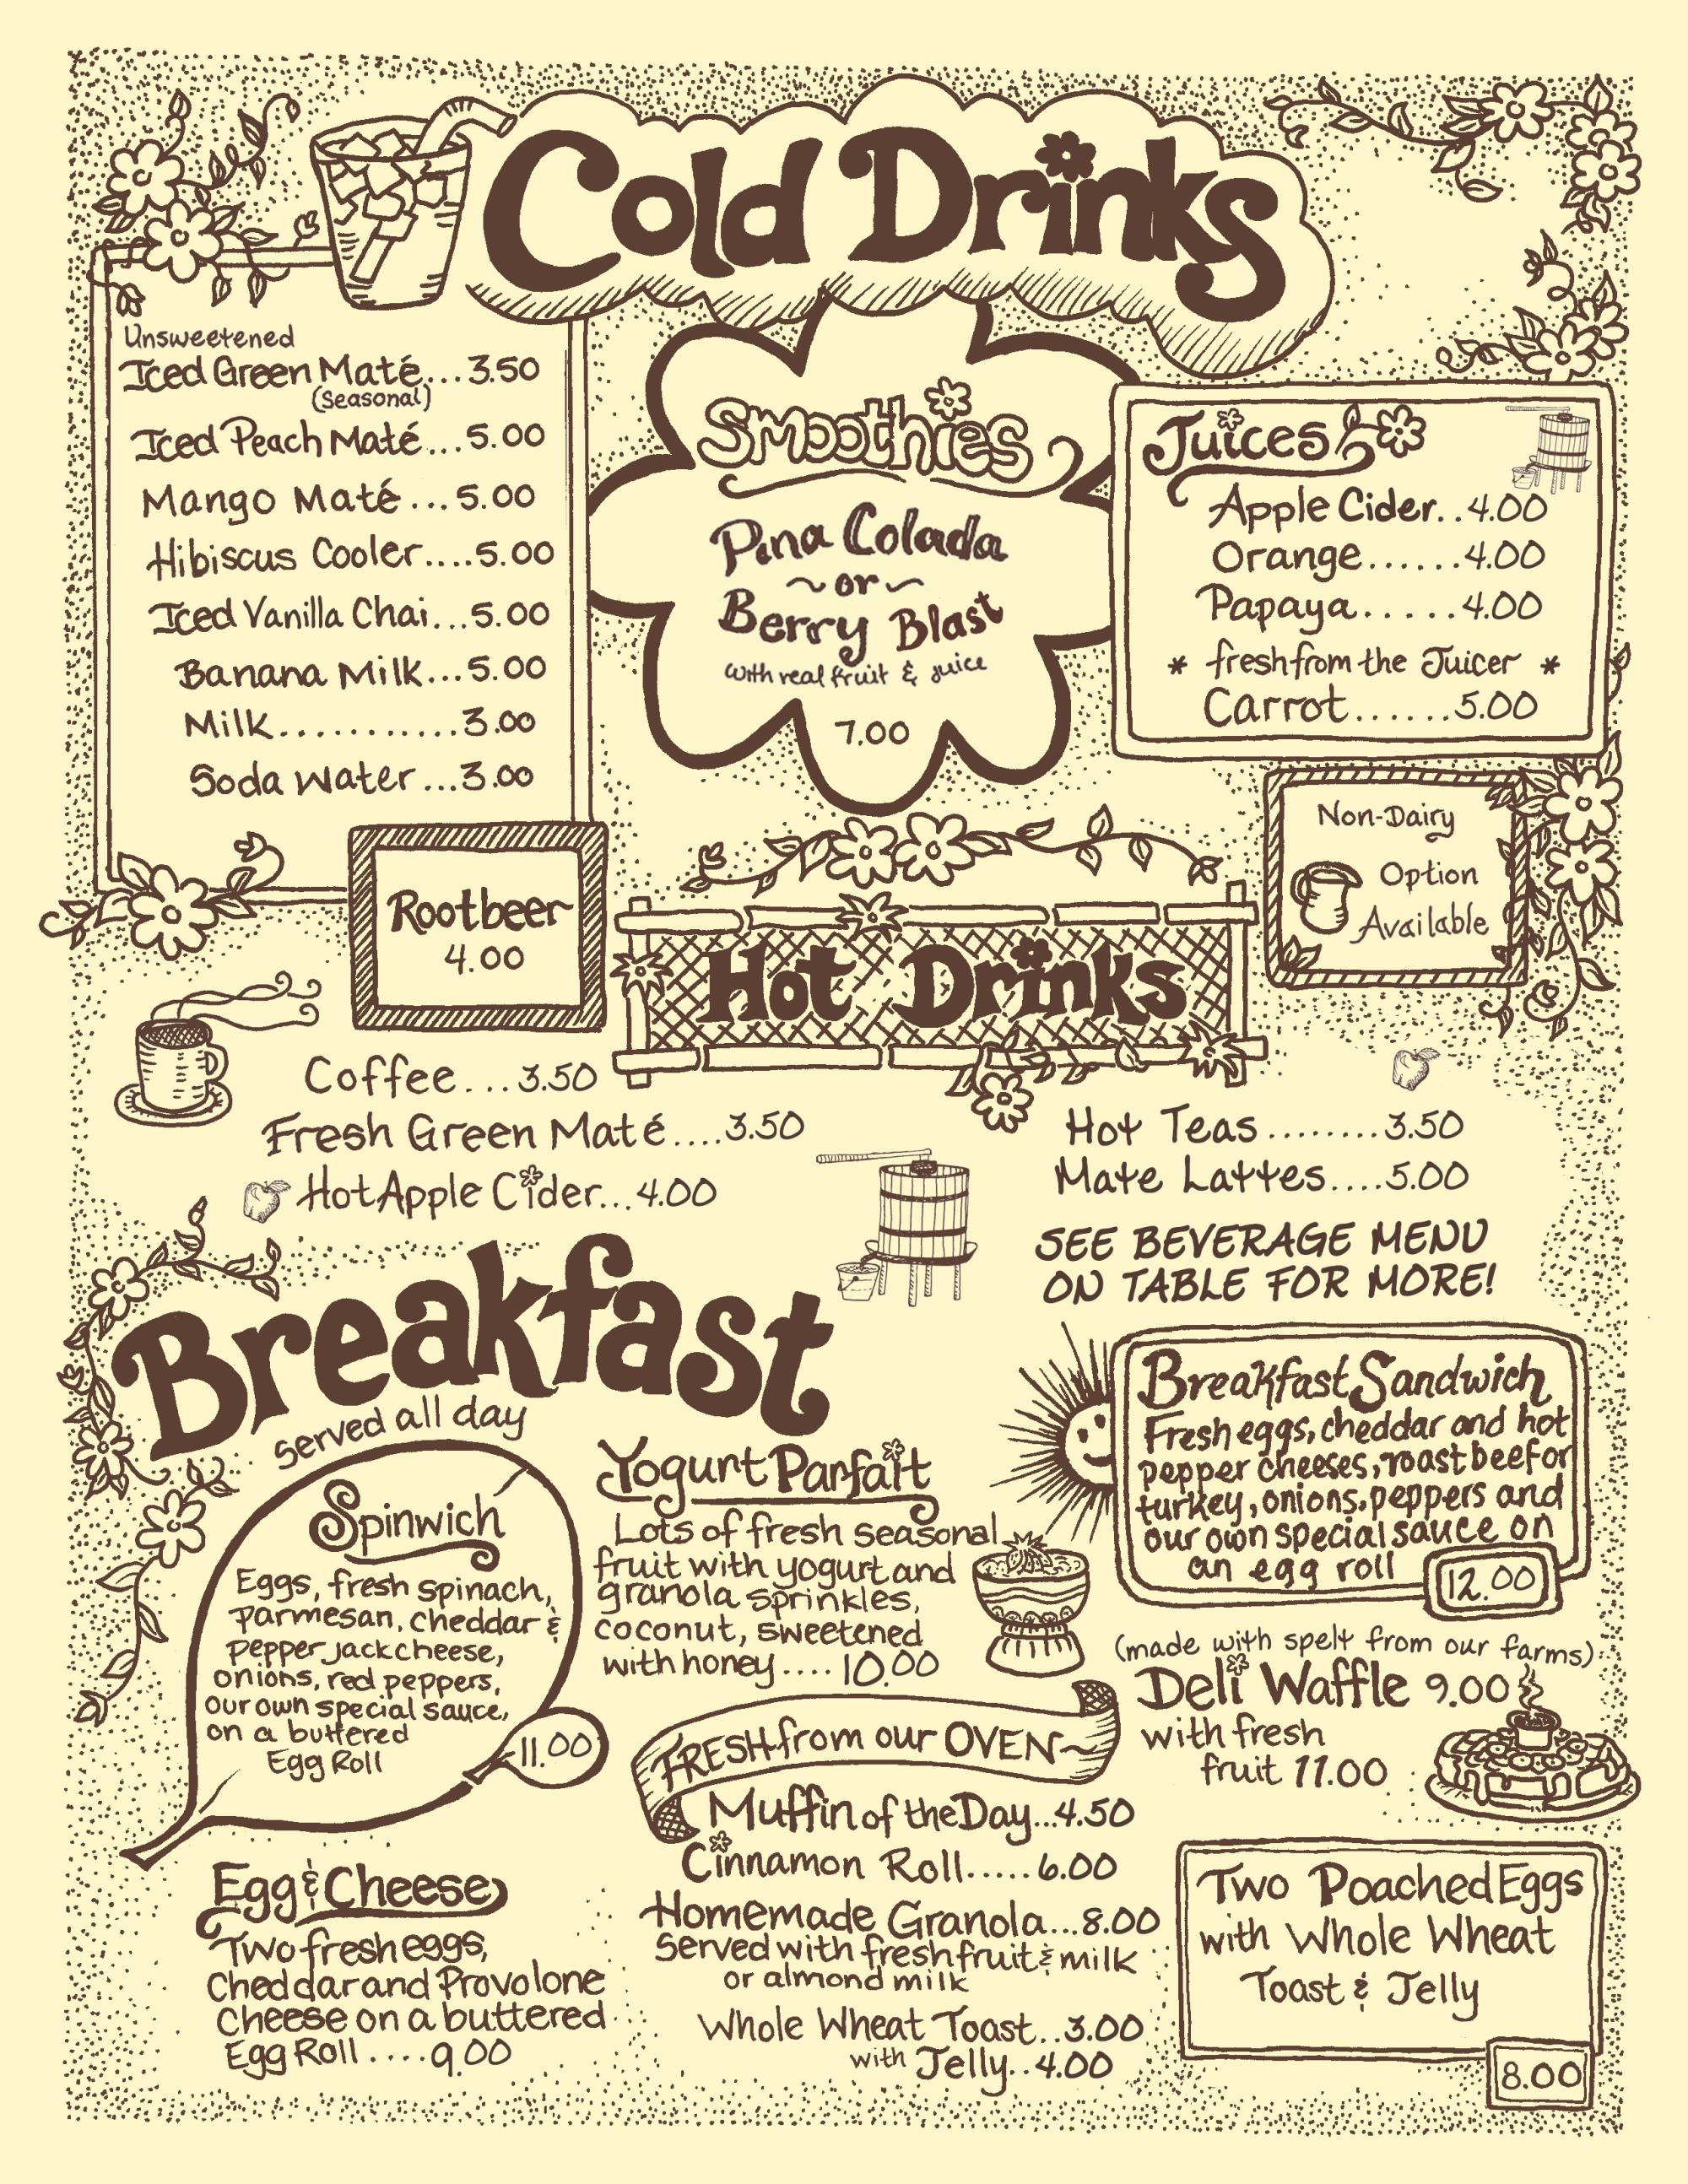 Cold Drinks
Unsweetened
Iced Green Maté... 3.50
(Seasonal)
Iced Peach Maté... 5.00
Mango Maté... 5.00
Hibiscus Cooler....5.00
Iced Vanilla Chai...5.00
Banana Milk...5.00
Milk............3.00
Soda Water...3.00
Rootbeer
4.00
Smoothies
Pina Colada
~ or ~
Berry Blast
with real fruit & juice
7.00
Juices
Apple Cider..4.00
Orange......4.00
Papaya......4.00
* fresh from the Juicer *
Carrot.......5.00
Non-Dairy
Option
Available
Hot Drinks
Coffee...3.50
Fresh Green Maté....3.50
Hot Apple Cider...4.00
Hot Teas........3.50
Mate Lattes....5.00
SEE BEVERAGE MENU
ON TABLE FOR MORE!
Breakfast
Served all day
Spinwich
Eggs, fresh spinach,
Parmesan, cheddar &
Pepper Jack cheese,
onions, red peppers,
our own special sauce,
on a buttered
Egg Roll
11.00
Egg & Cheese
Two fresh eggs,
Cheddar and Provolone
Cheese on a buttered
Egg Roll....9.00
Yogurt Parfait
Lots of fresh seasonal
fruit with yogurt and
granola sprinkles,
coconut, sweetened
with honey.... 10.00
FRESH from our OVEN~
Muffin of the Day...4.50
Cinnamon Roll.....6.00
Homemade Granola...8.00
Served with fresh fruit & milk
or almond milk
Whole Wheat Toast..3.00
with Jelly..4.00
Breakfast Sandwich
Fresh eggs, cheddar and hot
pepper cheeses, roast beef or
turkey, onions, peppers and
our own special sauce on
an egg roll
12.00
(made with spelt from our farms)
Deli Waffle 9.00
with fresh
fruit 11.00
Two Poached Eggs
with Whole Wheat
Toast & Jelly
8.00